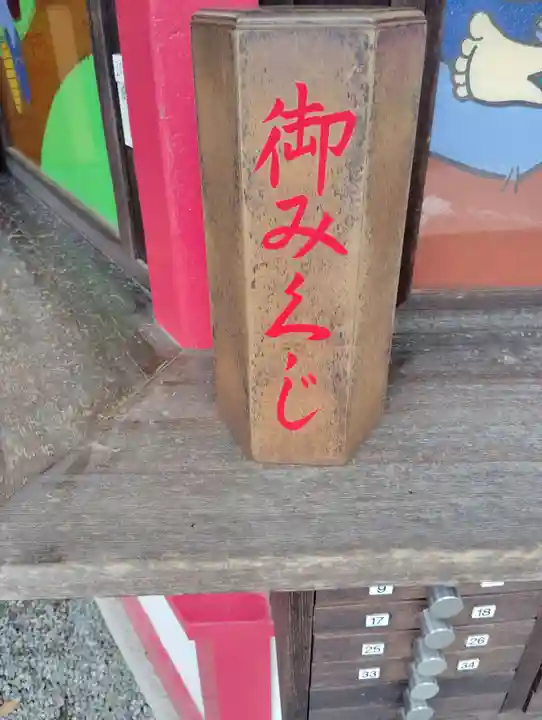 御みくじ
9
17
18
25
26
33
34